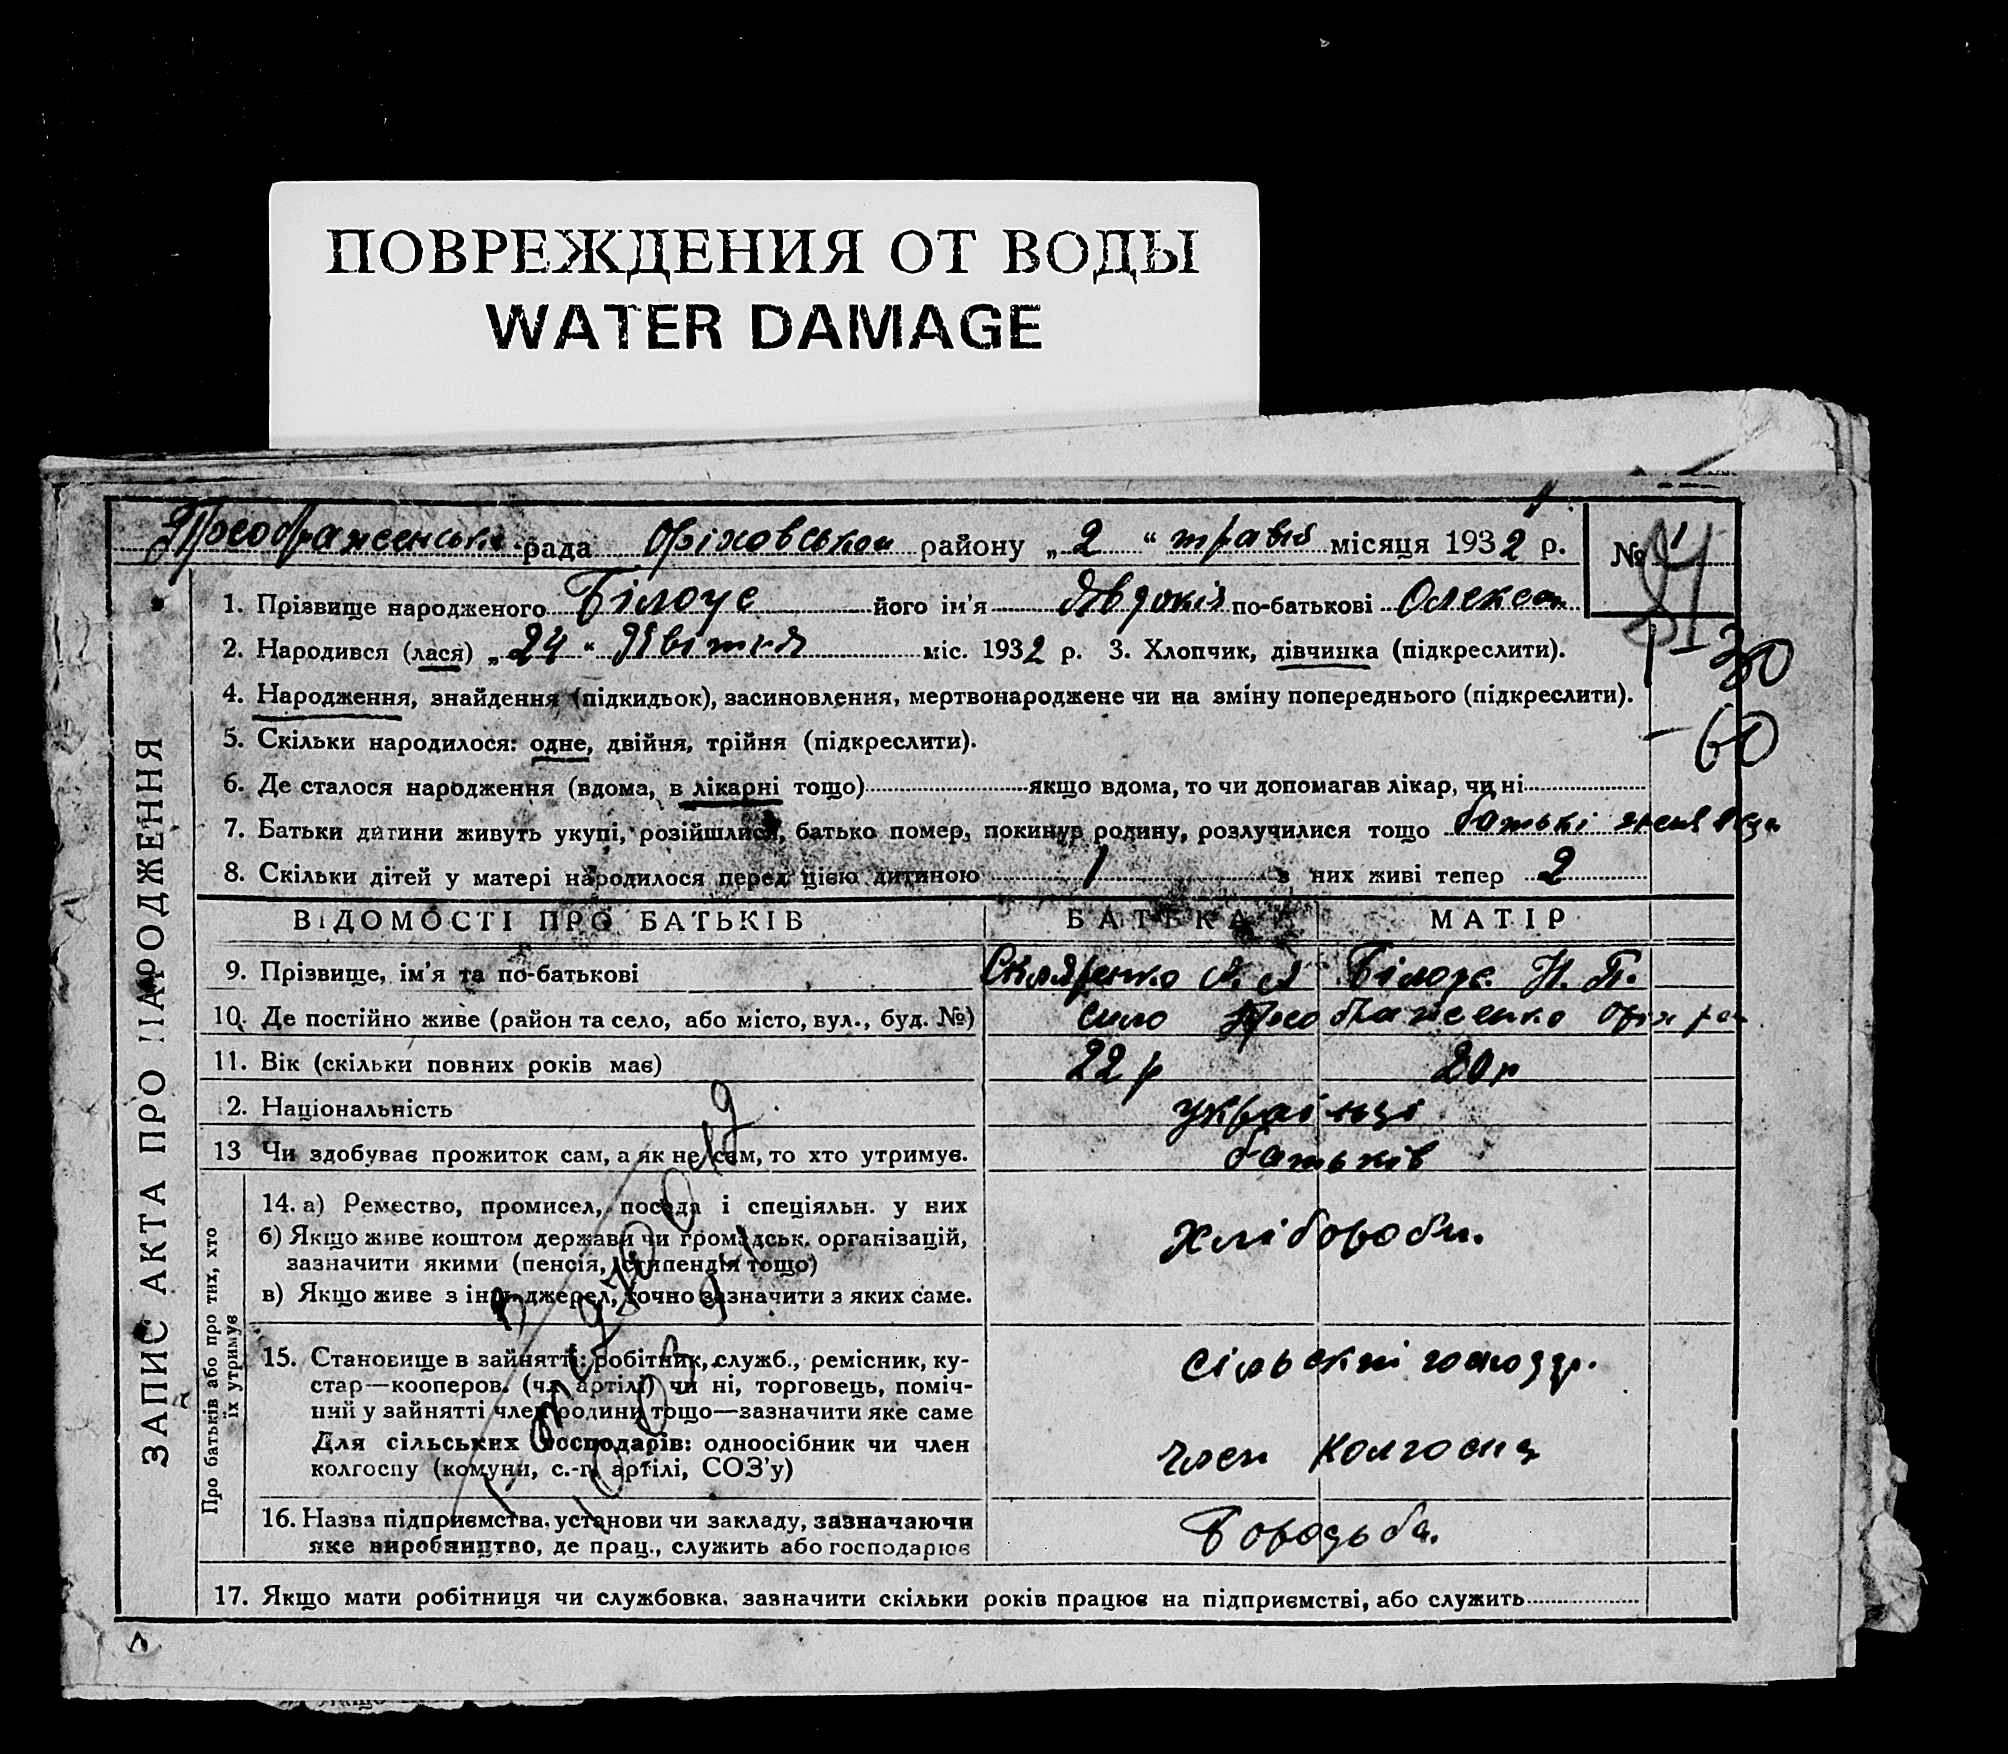 ПОВРЕЖДЕНИЯ ОТ ВОДЫ
WATER DAMAGE
Преображенська рада Оріховськом району „2“ травня місяця 1932 р. № 1
1. Прізвище народженого Білоус його ім'я Явдокія по-батькові Олексан
2. Народився (лася) „24“ Квітня міс. 1932 р. 3. Хлопчик, дівчинка (підкреслити).
30
4. Народження, знайдення (підкидьок), засиновлення, мертвонароджене чи на зміну попереднього (підкреслити).
5. Скільки народилося: одне, двійня, трійня (підкреслити).
60
6. Де сталося народження (вдома, в лікарні тощо) якщо вдома, то чи допомагав лікар, чи ні
7. Батьки дитини живуть укупі, розійшлися, батько помер, покинув родину, розлучилися тощо батькі
8. Скільки дітей у матері народилося перед цією дитиною 1 з них живі тепер 2
ВІДОМОСТІ ПРО БАТЬКІВ БАТЬКА МАТІР
9. Прізвище, ім'я та по-батькові Скляренко О. А Білоус Н. П.
10. Де постійно живе (район та село, або місто, вул., буд. №) село Преображенко Оріх р-н
11. Вік (скільки повних років має) 22 р 20 р
12. Національність українці
13 Чи здобуває прожиток сам, а як не сам, то хто утримує. батьків
14. а) Ремество, промисел, посада і спеціяльн. у них
б) Якщо живе коштом держави чи громадськ. організацій,
зазначити якими (пенсія, стипендія тощо)
хлібороби.
в) Якщо живе з інш. джерел, точно зазначити з яких саме.
15. Становище в зайнятті: робітник, служб., ремісник, ку-
стар—кооперов. (чл. артілі) чи ні, торговець, поміч-
ний у зайнятті член родини тощо—зазначити яке саме
сільскі господр.
Для сільських господарів: одноосібник чи член
колгоспу (комуни, с.-г. артілі, СОЗ'у)
член колгоспу
16. Назва підприємства, установи чи закладу, зазначаючи
яке виробництво, де прац., служить або господарює
Бородьба.
17. Якщо мати робітниця чи службовка, зазначити скільки років працює на підприємстві, або служить
ЗАПИС АКТА ПРО НАРОДЖЕННЯ
Про батьків або про тих, хто
їх утримує